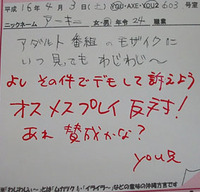 平成 16年 4月 3日(土) YOU・AXE・YOU2 603 号室
ニックネーム アーキー 女・男 年令 24 職業
アダルト番組のモザイクに
いつ見ても わじわじ〜
よし その件でデモして訴えよう
オスメスプレイ 反対!
あれ 賛成かな?
you兄
などの意味の沖縄方言です